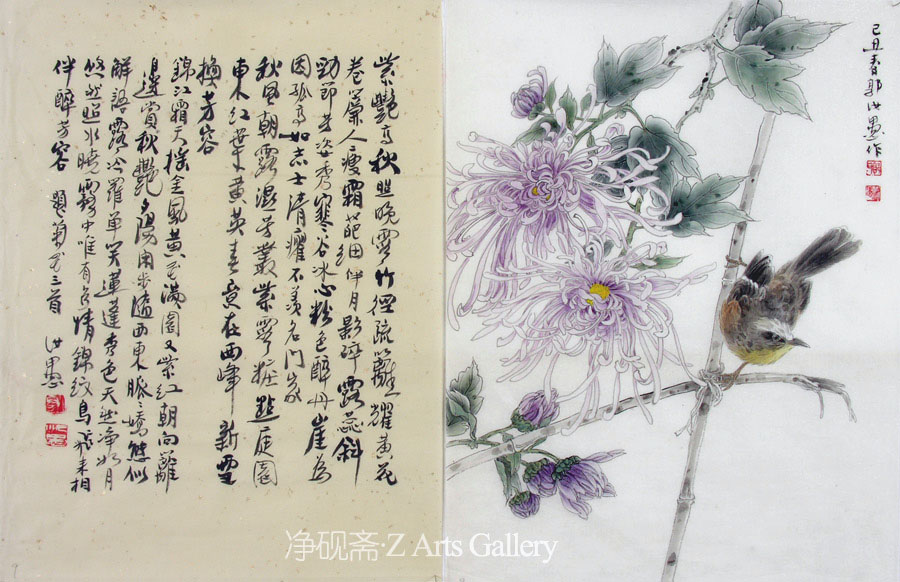 紫艷高秋照晚霞竹徑疏籬耀黃花
卷簾人瘦霜葩伴月影碎露蕊斜
勁節芳姿秀寒谷冰心粉色醉丹崖為
因孤高如志士清癯不羡名門
秋風朝露濕芳叢紫雩粧點庭園
東紅葉黃英春意在西峰新雪
換芳容
錦江霜天搖金風黃花滿園又紫紅朝向籬
邊賞秋艷夕陽閑步遶西東脈嬌態似
解語露冷羅單笑蓮蓬秀色天然淨如月
悠然照水曉霧中唯有色清錦紋鳥飛來相
伴醉芳容 題菊花三首 汝愚
己丑春郭汝愚作
净砚斋·Z Arts Gallery